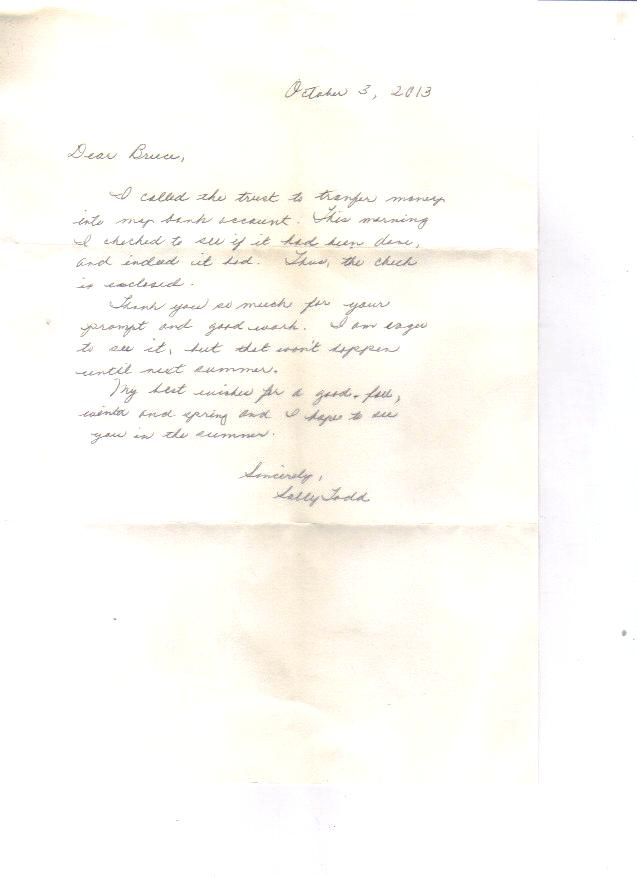 October 3, 2013
Dear Bruce,
I called the trust to tranfer money
into my bank account. This morning
I checked to see if it had been done,
and indeed it had. Thus, the check
is enclosed.
Thank you so much for your
prompt and good work. I am eager
to see it, but that won't happen
until next summer.
My best wishes for a good fall,
winter and spring and I hope to see
you in the summer.
Sincerely,
Sally Todd